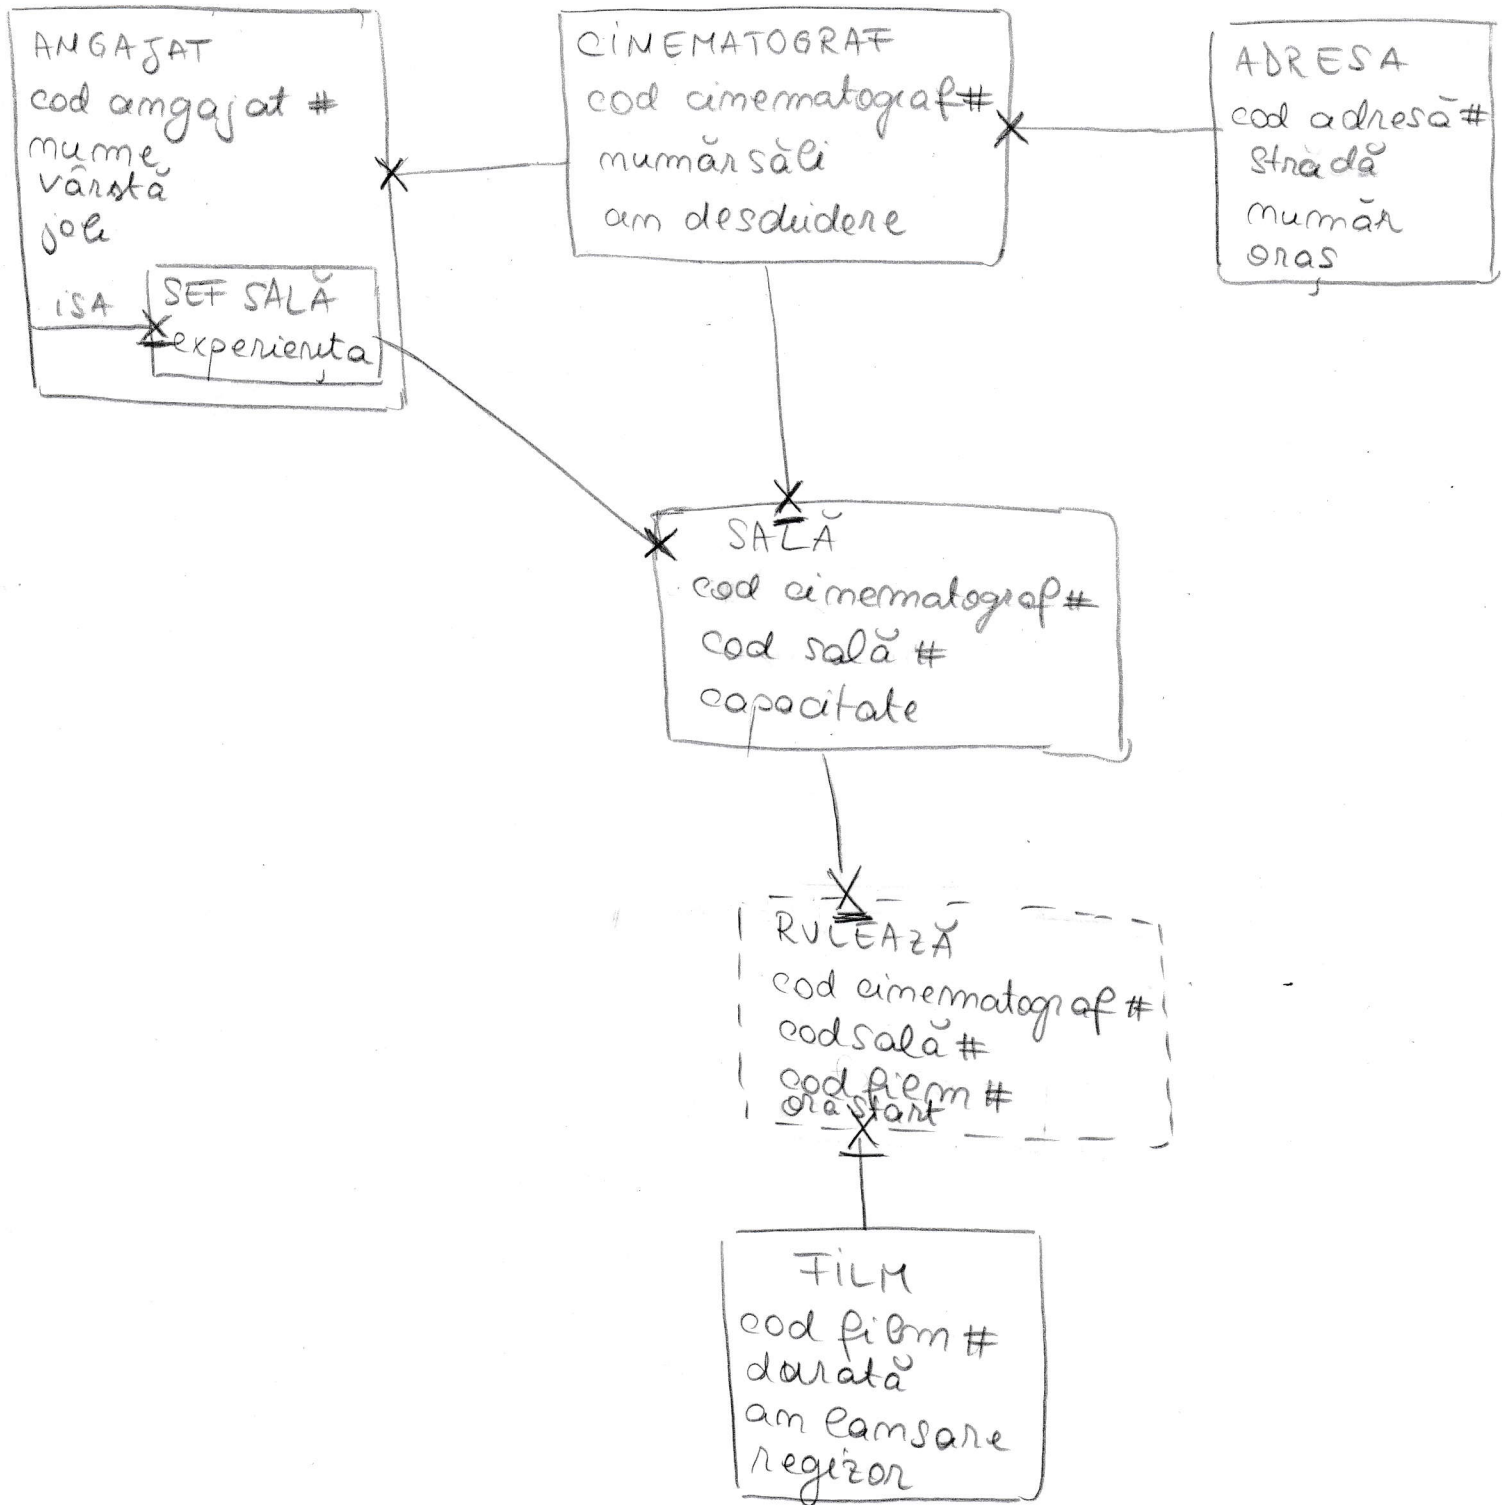 ANGAJAT
cod angajat #
nume
vârstă
job
iSA
ȘEF SALĂ
experiența
CiNEMATOGRAF
cod cinematograf #
număr săli
an deschidere
ADRESA
cod adresă #
stradă
număr
oraș
SALĂ
cod cinematograf #
cod sală #
capacitate
RULEAZĂ
cod cinematograf #
cod sală #
cod film #
ora start
FiLM
cod film #
durată
an lansare
regizor